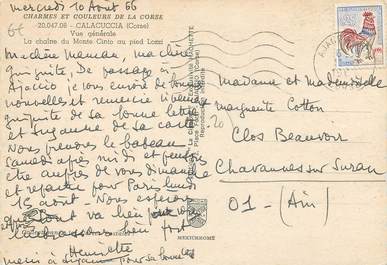 Mercredi 10 Aout 66
CHARMES ET COULEURS DE LA CORSE
20.047.08 - CALACUCCIA (Corse)
Vue générale
La chaîne du Monte Cinto au pied Lozzi
Ma chère Maman, ma chère
guiguite, De passage à
Ajaccio je vous envoie de bonnes
nouvelles et remercie
guiguite de sa bonne lettre
et Suzanne de sa carte
Nous prenons le bateau
samedi après midi et pensons
être auprès de vous dimanche
et repartir pour Paris lundi
15 août - Nous espérons
que tout va bien pour vous
embrassons bien fort
Henriette
merci à Suzanne pour sa
MEXICHROME
AJACCIO
Madame et Mademoiselle
Marguerite Cotton
Clos Beauvoir
Chavannes sur Suran
01 - (Ain)